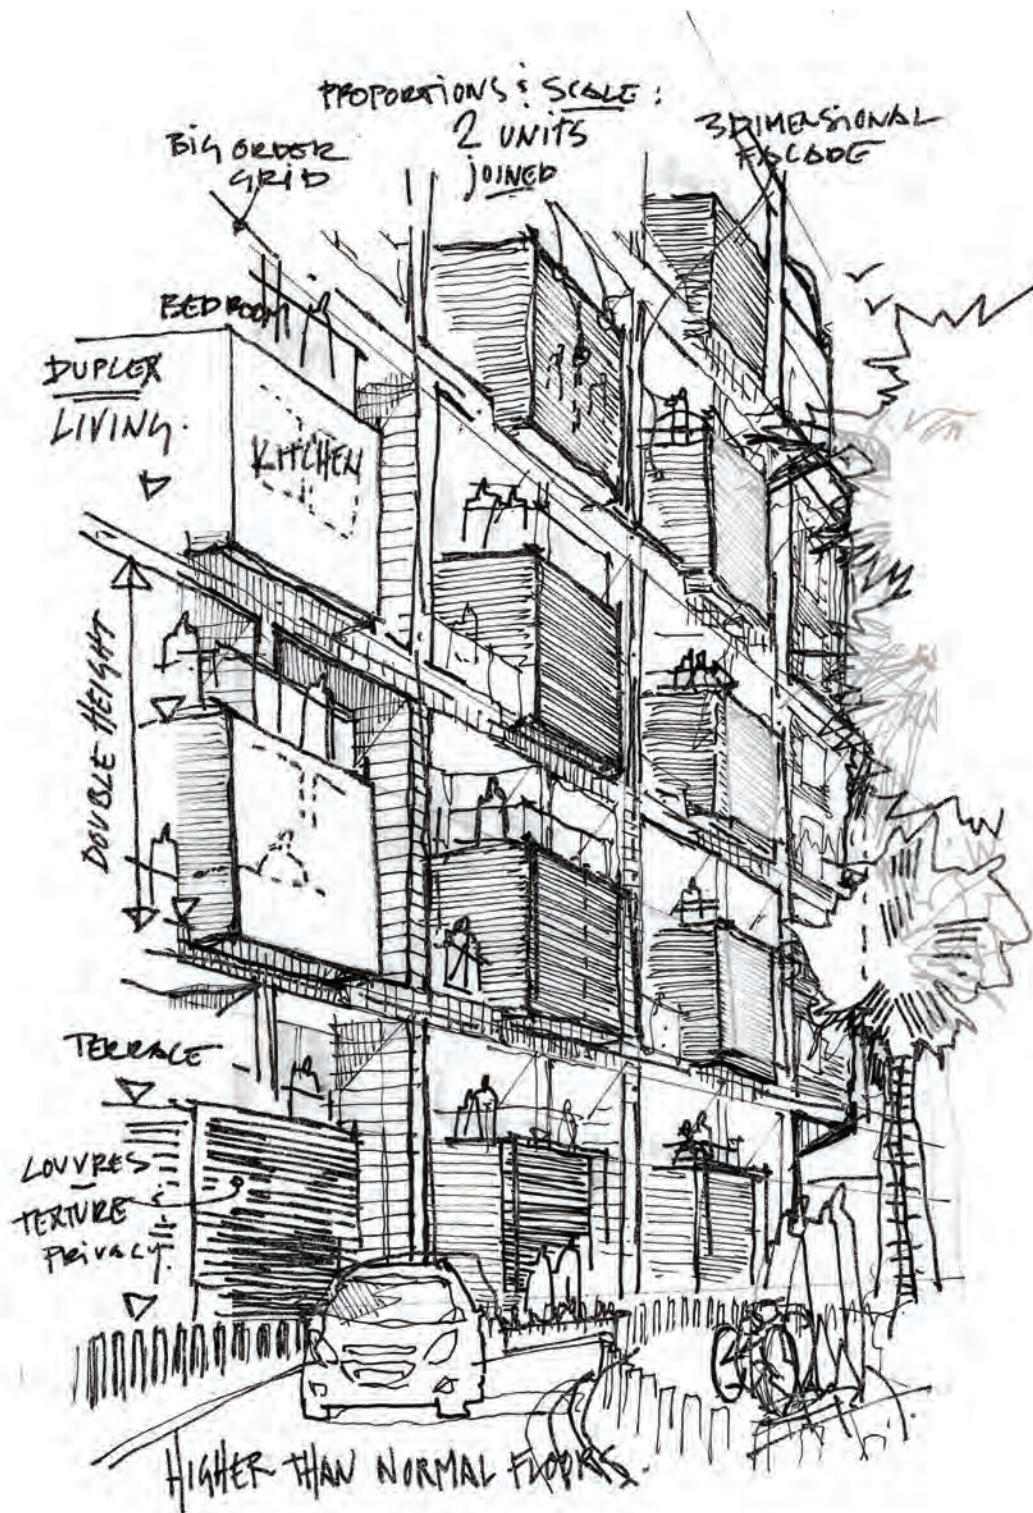 PROPORTIONS & SCALE:
2 UNITS
JOINED
BIG ORDER
GRID
3 DIMENSIONAL
FACADE
BEDROOM
DUPLEX
LIVING.
KITCHEN
DOUBLE HEIGHT
TERRACE
LOUVRES
TEXTURE
PRIVACY.
HIGHER THAN NORMAL FLOORS.